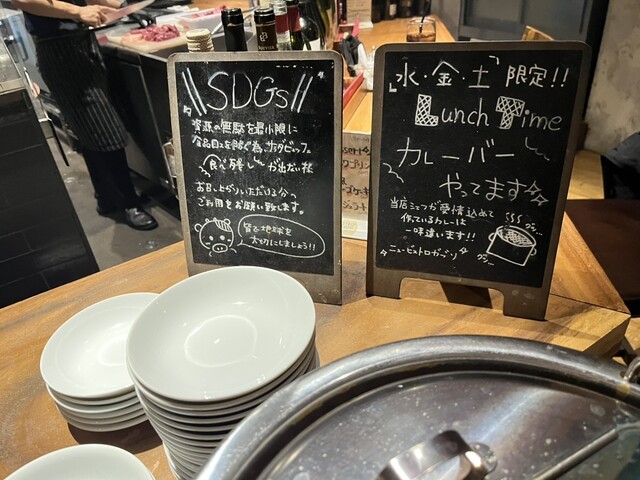 \\SDGs//
資源の無駄を最小限に
食品ロスを除く為、サラダビュッフェ
食べ残しが出ない様
お召し上がりいただける分、
ご利用をお願い致します。
皆で地球を
大切にしましょう!!
「水・金・土」限定!!
Lunch Time
カレーバー
やってます
当店シェフが愛情込めて
作っているカレーは
一味違います!!
ニュービストロガブリ
グツ…
グツ…